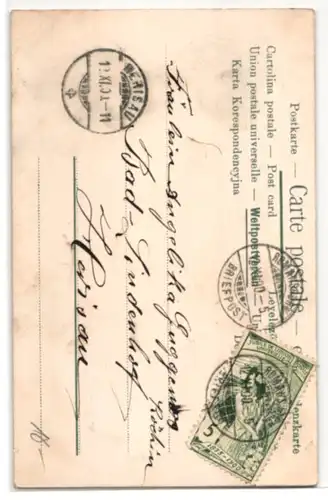 Postkarte —
Carte postale — C
Weltpostverein
denzkarte
Cartolina postale — Post card
Union postale universelle —
Karta Korespondencyjna
Levelez
HERISAU
XI.01-11
BRIEFPOST
Fräulein Angelika Guggenos
Köchin
Bad-Lindenhof
Herisau
5